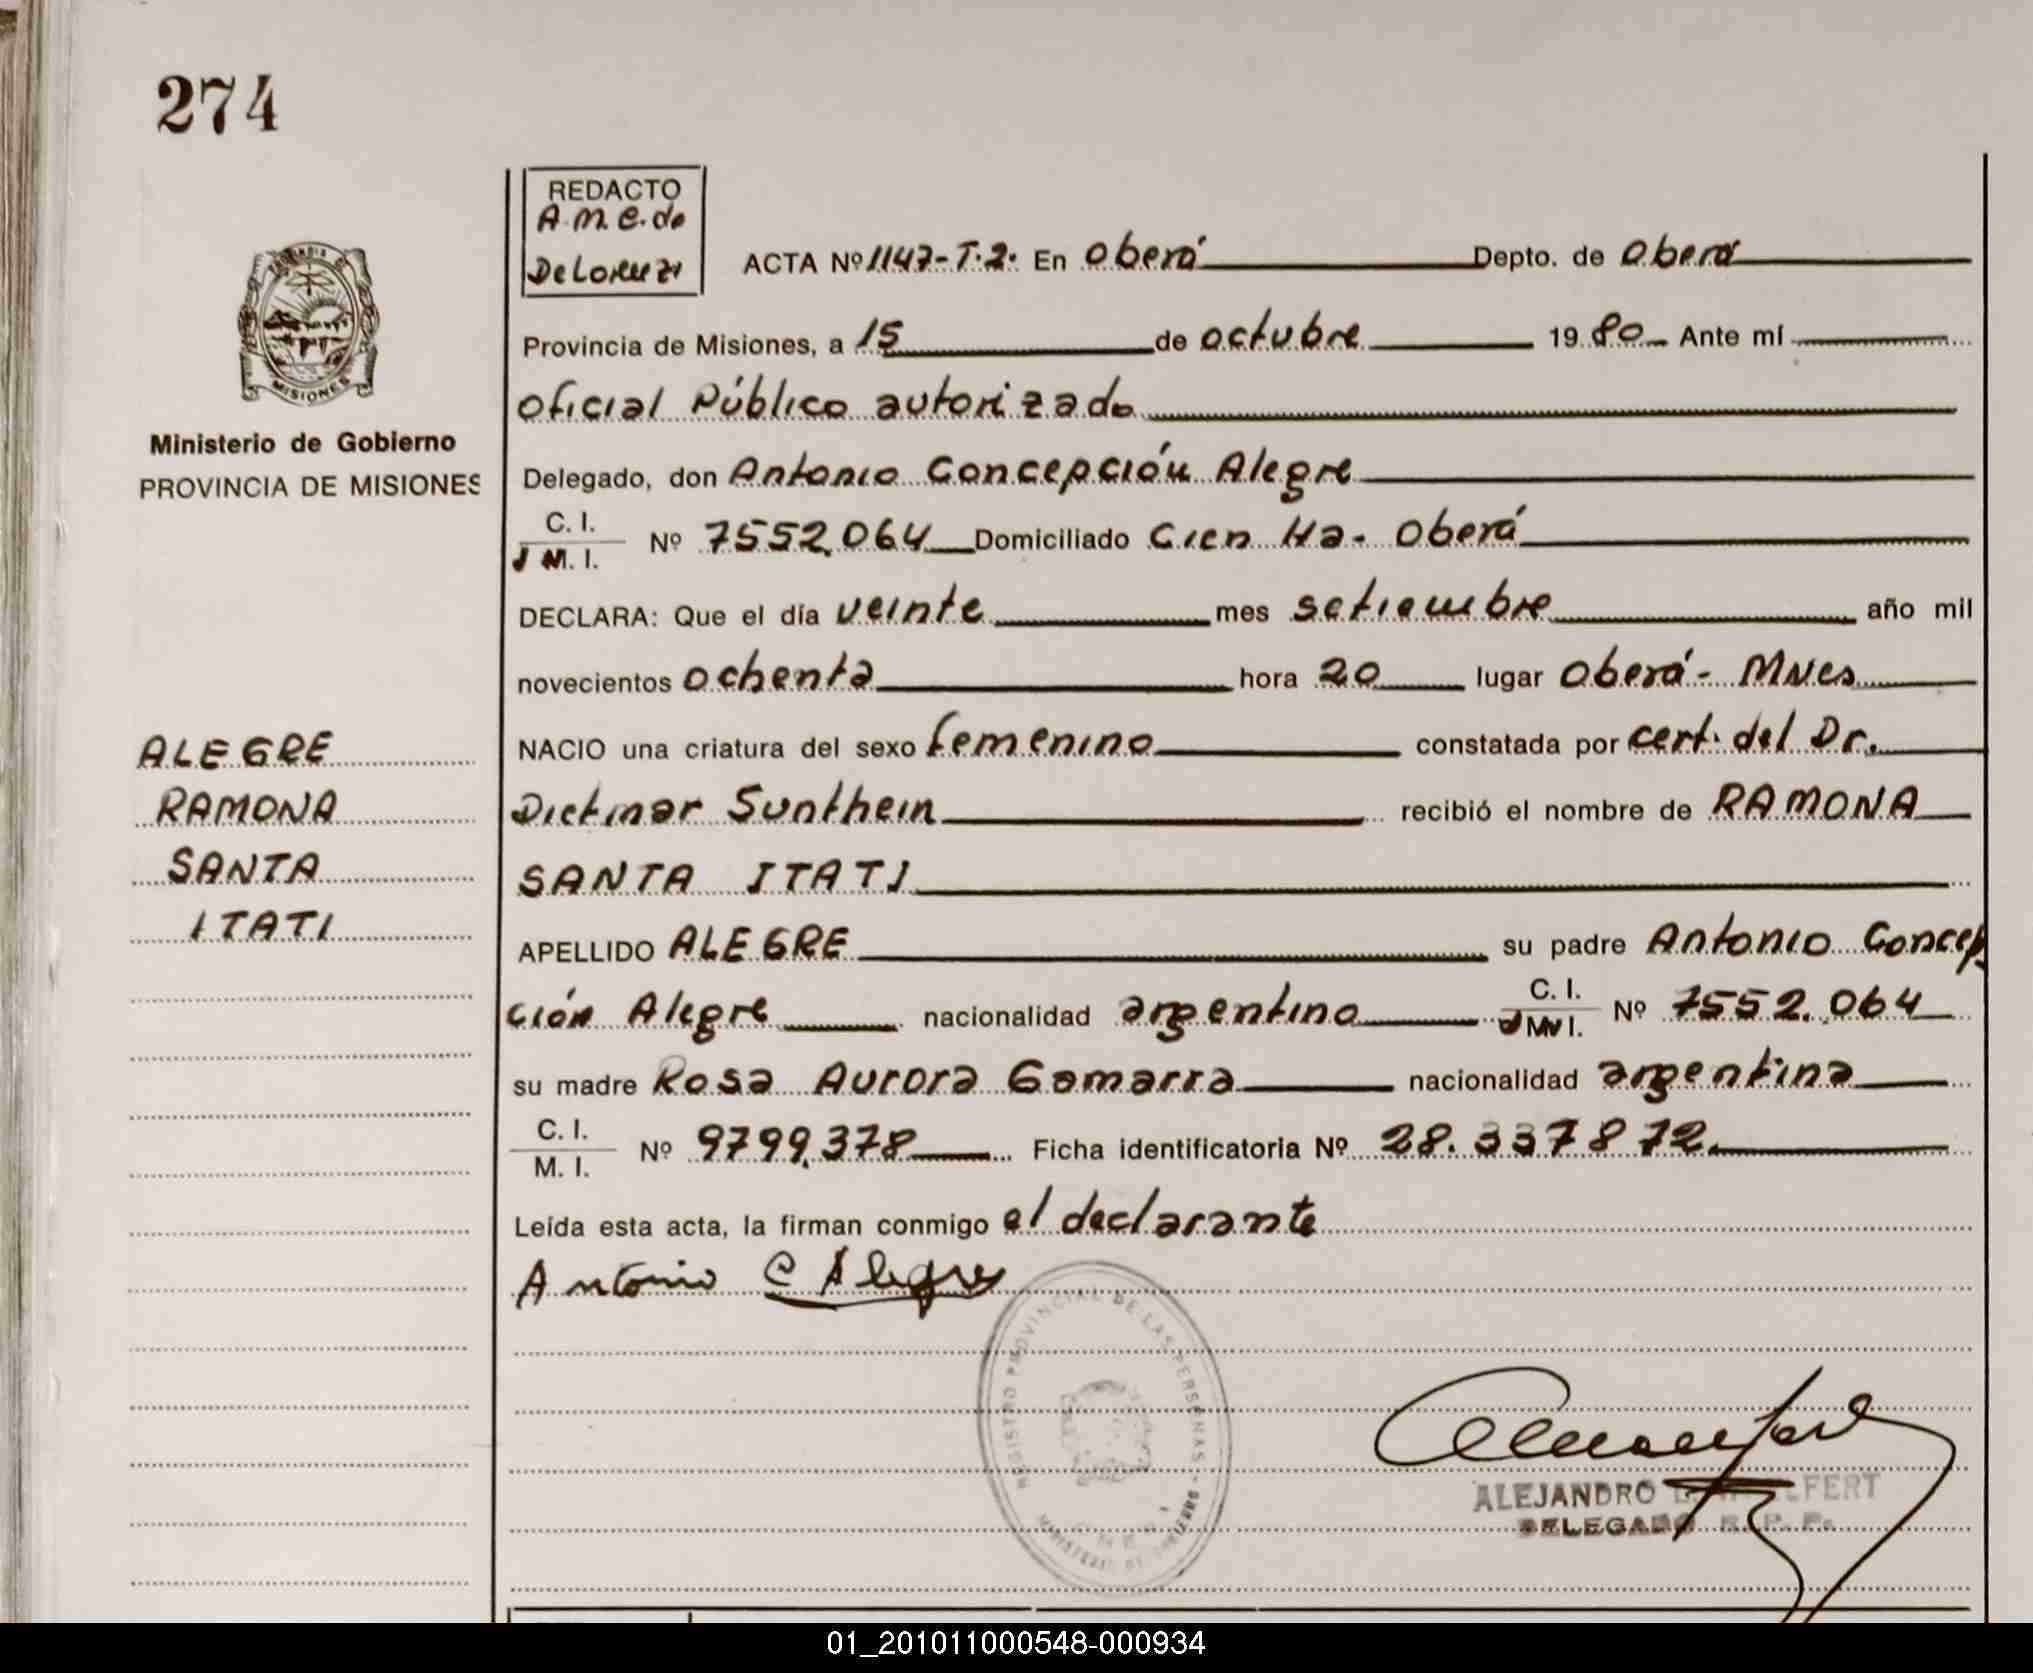 274
REDACTO
A.M.C.de
DeLorenzi
ACTA Nº 1147-T.2. En Oberá Depto. de Oberá
Provincia de Misiones, a 15 de octubre 1980 Ante mí
Oficial Público autorizado
Ministerio de Gobierno
PROVINCIA DE MISIONES
MISIONES
Delegado, don Antonio Concepción Alegre
C. I.
M. I. Nº 7552.064 Domiciliado Cien Ha- Oberá
DECLARA: Que el día veinte mes setiembre año mil
novecientos ochenta hora 20 lugar Oberá- Mnes
ALEGRE
RAMONA
SANTA
ITATI
NACIO una criatura del sexo femenino constatada por cert. del Dr.
Dietmar Sunthein recibió el nombre de RAMONA
SANTA ITATI
APELLIDO ALEGRE su padre Antonio Concep
ción Alegre nacionalidad argentino C. I.
M. I. Nº 7552.064
su madre Rosa Aurora Gamarra nacionalidad argentina
C. I.
M. I. Nº 9799.378 Ficha identificatoria Nº 28.337872
Leída esta acta, la firman conmigo el declarante
Antonio C Alegre
REGISTRO PROVINCIAL DE LAS PERSONAS
ALEJANDRO
DELEGADO R. P. P.
01_201011000548-000934